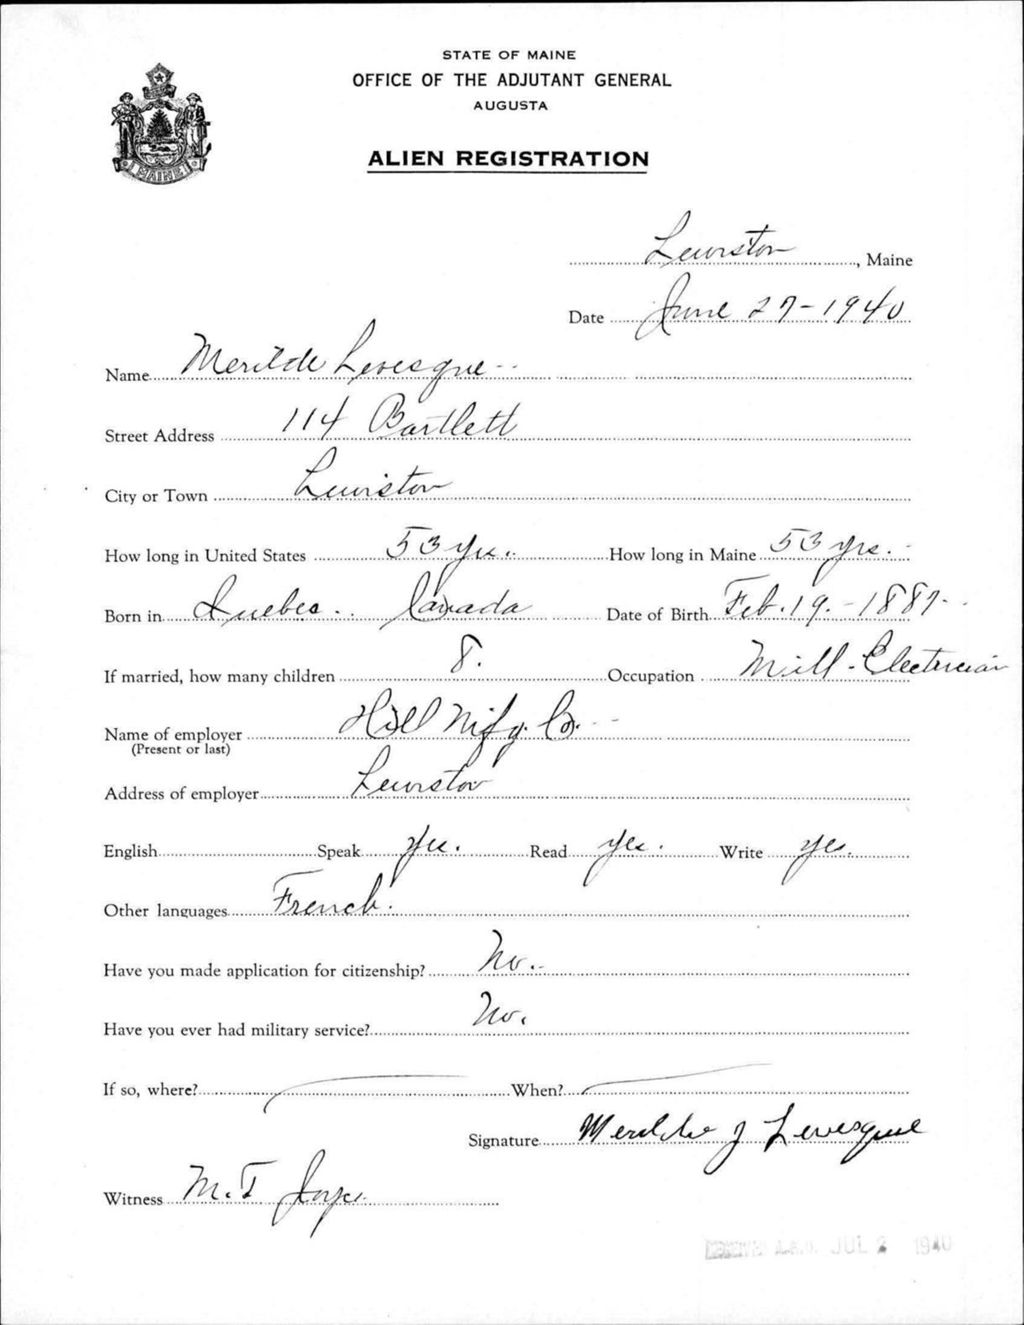 STATE OF MAINE
OFFICE OF THE ADJUTANT GENERAL
AUGUSTA
MAINE
ALIEN REGISTRATION
Lewiston, Maine
Date June 27-1940
Name Merilde Levesque
Street Address 114 Bartlett
City or Town Lewiston
How long in United States 53 yrs. How long in Maine 53 yrs.
Born in Quebec Canada Date of Birth Feb. 19. - 1887
If married, how many children 8. Occupation Mill-Electrician
Name of employer Hill Mfg. Co.
(Present or last)
Address of employer Lewiston
English Speak Yes. Read yes. Write yes.
Other languages French.
Have you made application for citizenship? No.
Have you ever had military service? No.
If so, where? When?
Signature J Levesque
Witness M.T Joyce
JUL 2 1940